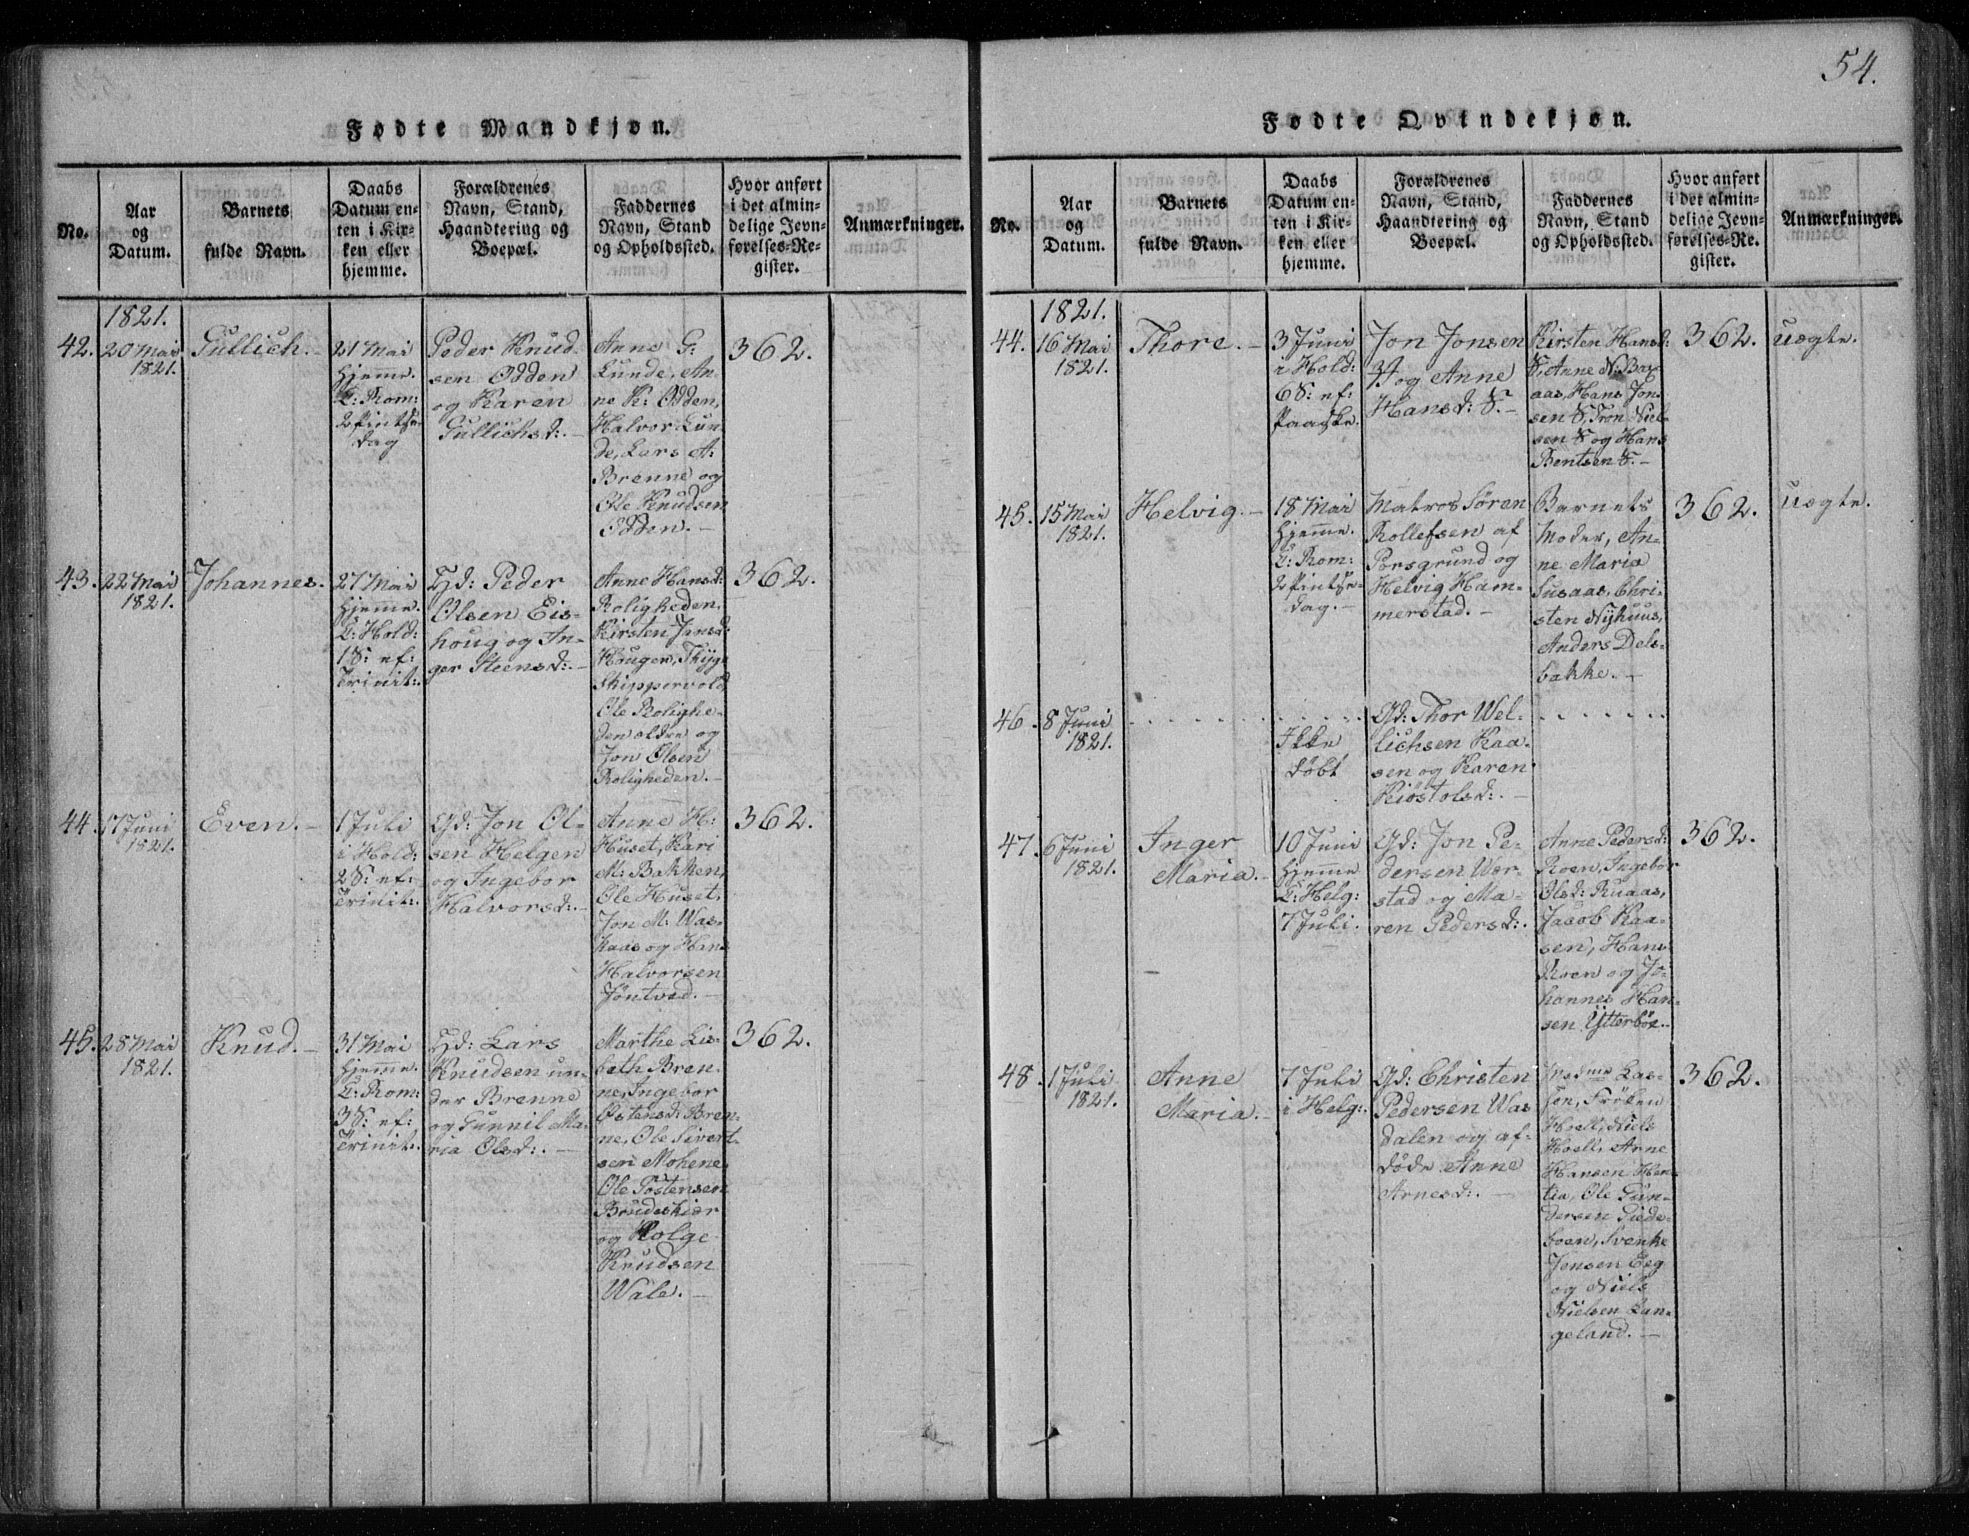 54.
Fødte Mandkjøn.
No.
Aar
og
Datum.
Barnets
fulde Navn.
Daabs
Datum en-
ten i Kir-
ken eller
hjemme.
Forældrenes
Navn, Stand,
Haandtering og
Boepæl.
Faddernes
Navn, Stand
og Opholdssted.
Hvor anført
i det almin-
delige Jevn-
førelses-Re-
gister.
Anmærkninger.
1821.
42.
20 Mai
1821.
Gullich.
21 Mai
hjemme.
T: Rom:
2 Pintse-
dag
Peder Knud-
sen Odden
og Karen
Gullichsd:
Anne G:
Lunde, An-
ne K: Odden,
Halvor Lun-
de, Lars A:
Brenne og
Ole Knudsen
Odden.
362.
43.
22 Mai
1821.
Johannes.
27 Mai
hjemme.
T: Hold:
1 S: ef:
Trinit:
Hd: Peder
Olsen Eis-
houg og In-
ger Steensd:
Anne Hansd:
Roligheden,
Kirsten Jonsd:
Hougen, Thyge
Skippervold
Ole Rolighe-
den ældre og
Jon Olsen
Roligheden.
362.
44.
17 Juni
1821.
Even.
1 Juli
i Hold:
2 S: ef:
Trinit:
Gd: Jon Ol-
sen Helgen
og Ingebor
Halvorsd:
Anne H:
Huset, Kari
M: Bakken,
Ole Huset,
Jon M: Was-
kaas og Hans
Halvorsen
Jøntved.
362.
45.
28 Mai
1821.
Knud.
31 Mai
hjemme.
T: Rom:
3 S: ef:
Trinit:
Hd: Lars
Knudsen un-
der Brenne
og Gunnil Ma-
ria Olsd:
Marthe Lis-
beth Bren-
ne, Ingebor
Østensd: Bren-
ne, Ole Sivert-
sen Mohene,
Ole Postensen
Brudeskiær
og Holge
Knudsen
Wale.
362.
Fødte Qvindekjøn.
No.
Aar
og
Datum.
Barnets
fulde Navn.
Daabs
Datum en-
ten i Kir-
ken eller
hjemme.
Forældrenes
Navn, Stand,
Haandtering og
Boepæl.
Faddernes
Navn, Stand
og Opholdssted.
Hvor anført
i det almin-
delige Jevn-
førelses-Re-
gister.
Anmærkninger.
1821.
44.
16 Mai
1821.
Thore.
3 Juni
i Hold:
6 S: ef:
Paaske.
Jon Jonsen
og Anne
Hansd: F.
Kirsten Hansd:
F, Anne N:
aas, Hans Jon-
sen F, Tron Niel-
sen F og Hans
Bentsen F.
362.
uægte.
45.
15 Mai
1821.
Helvig.
18 Mai
hjemme.
T: Rom:
2 Pintse-
dag.
Matros Søren
Rollefsen af
Porsgrund og
Helvig Ham-
merstad.
Barnets
Moder, An-
ne Maria
Susaas, Chri-
sten Nyhuus,
Anders Dels-
bakke.
362.
uægte.
46.
8 Juni
1821.
Ikke
døbt
Gd: Thor Wel-
lichsen Kaa-
sen og Karen
Kiøstolsd:
47.
6 Juni
1821.
Inger
Maria.
10 Juni
hjemme
T: Helg:
7 Juli.
Gd: Jon Pe-
dersen Wer-
stad og Ma-
ren Pedersd:
Anne Pedersd:
Roen, Ingebor
Olsd: Ruaas,
Jacob Kaa-
sen, Hans
Roen og Jo-
hannes Han-
sen Ytterbøe.
362.
48.
1 Juli
1821.
Anne
Maria.
7 Juli
i Helg:
Gd: Christen
Pedersen Was-
dalen og af-
døde Anne
Arnesd:
Mad^me Las-
sen, Frøken
Hoell, Niels
Hoell, Arne
Hansen Hen-
tia, Ole Gun-
dersen Giede-
boen, Svenke
Jensen Eeg
og Niels
Nielsen Lan-
geland.
362.